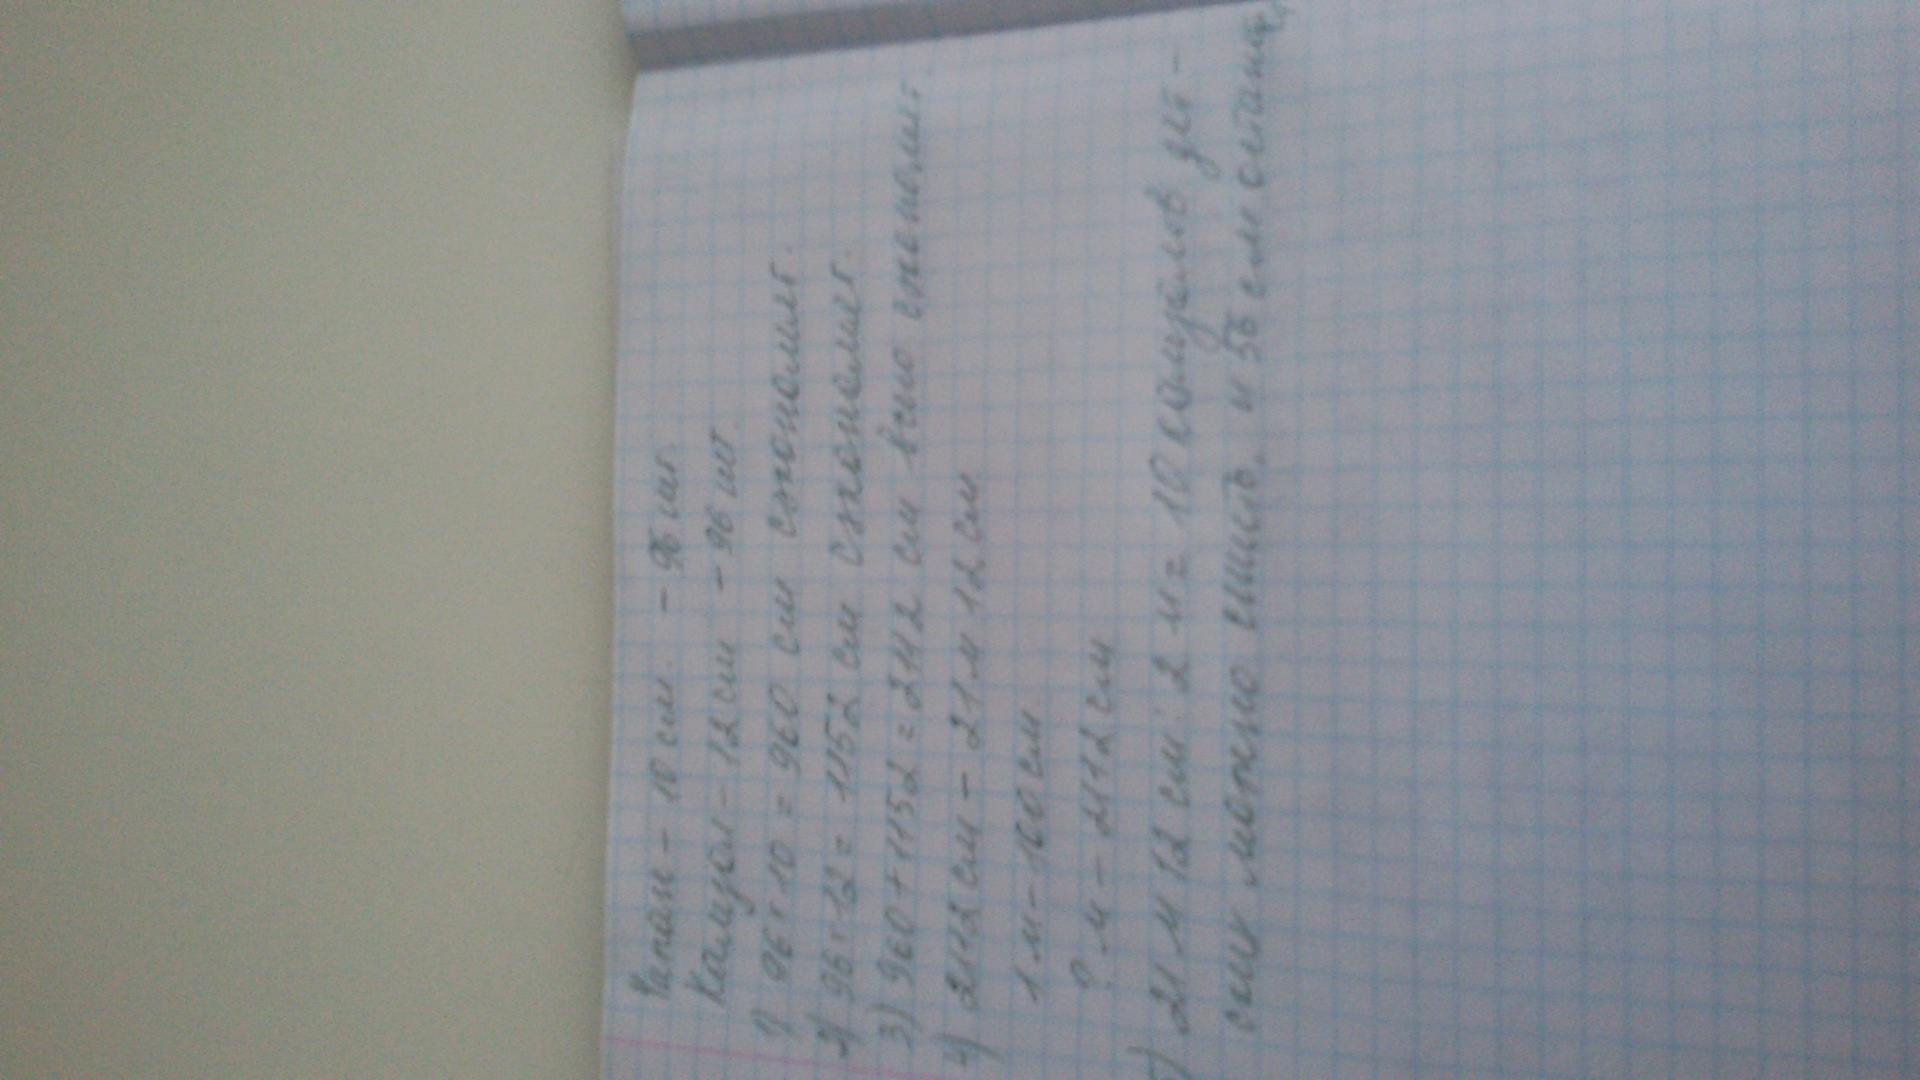 Чапан – 10 см. – 96 шт.
Камзол – 12 см – 96 шт.
1) 96 · 10 = 960 см сэкономит.
2) 96 · 12 = 1152 см сэкономит.
3) 960 + 1152 = 2112 см всего сэкономит.
4) 2112 см – 21 м 12 см
1 м – 100 см
? м – 2112 см
) 21 м 12 см : 2 м = 10 камзолов
можно сшить. и